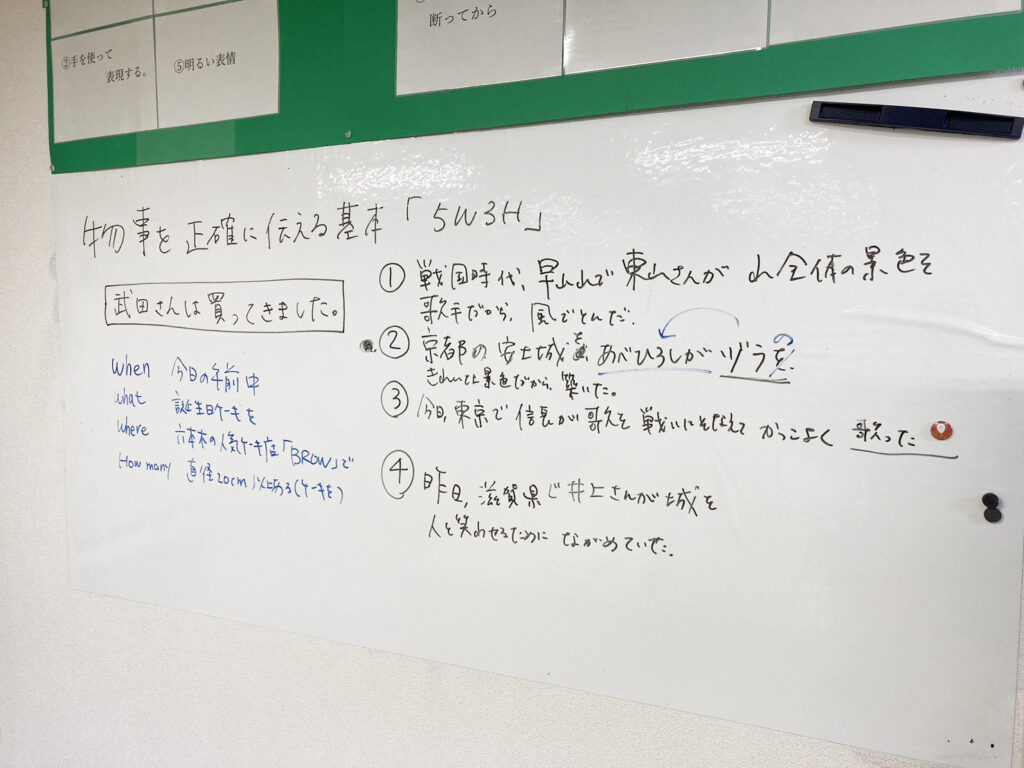 ②手を使って
表現する。
⑤明るい表情
断ってから
物事を正確に伝える基本「5W3H」
武田さんは買ってきました。
when 今日の午前中
what 誕生日ケーキを
where 六本木の人気ケーキ店「BROW」で
How many 直径20cm以上ある(ケーキを)
① 戦国時代、嵐山で東山さんが山全体の景色を
歌手だから、風でとんだ。
② 京都の安土城を あべひろしが ヅラを の
きれいな景色だから、築いた。
③ 今日、東京で信長が歌を戦いにそなえてかっこよく 歌った
④ 昨日、滋賀県で井上さんが城を
人を笑わせるために ながめていた。